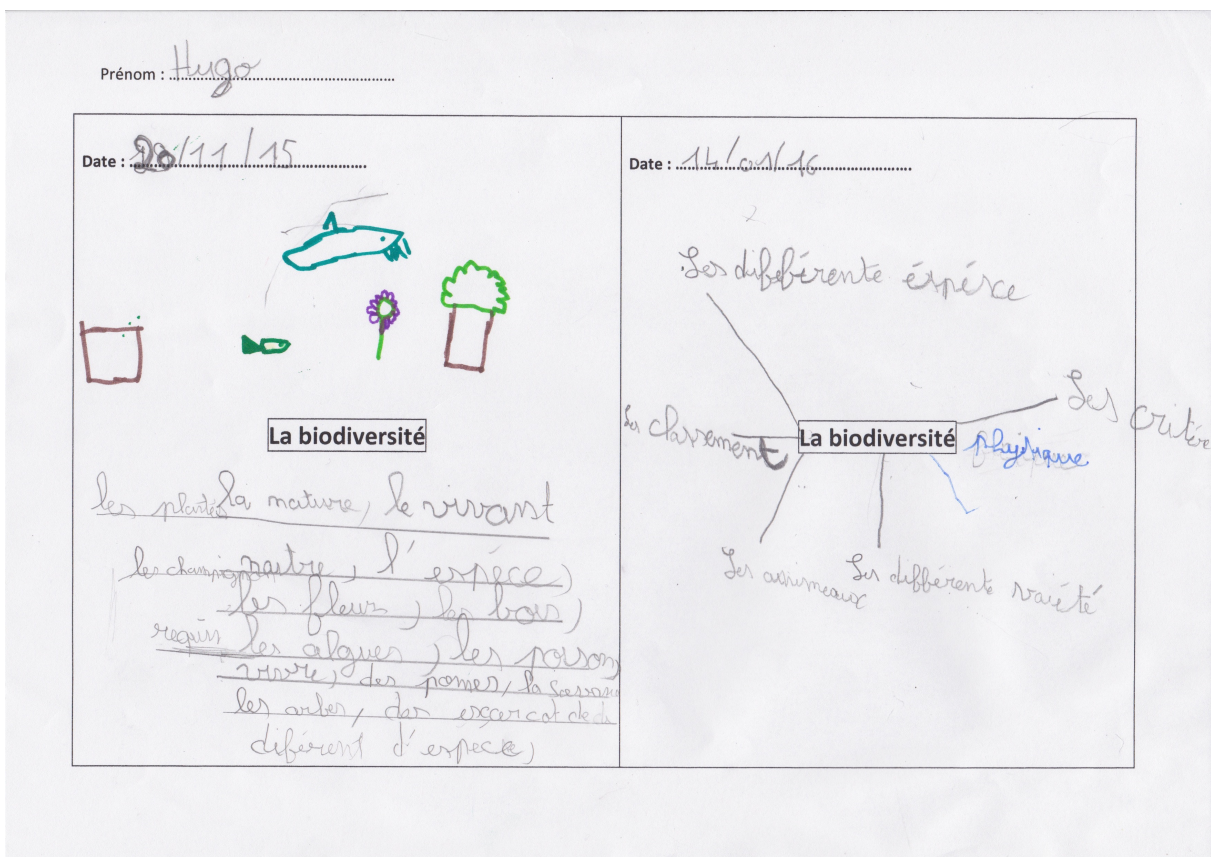 Prénom : Hugo
Date : 20/11/15
La biodiversité
les plantes la nature, le vivant
les champignon naitre, l'espéce,
les fleurs, les bois,
requin les algues, les poison,
vivre, des pomes,
les arbes, des
diférent d'espéce,
Date : 14/01/16
Les difeférente éspésce
Les critère
Les classement
La biodiversité
physique
Les anrimeaux
Les différente vaiété